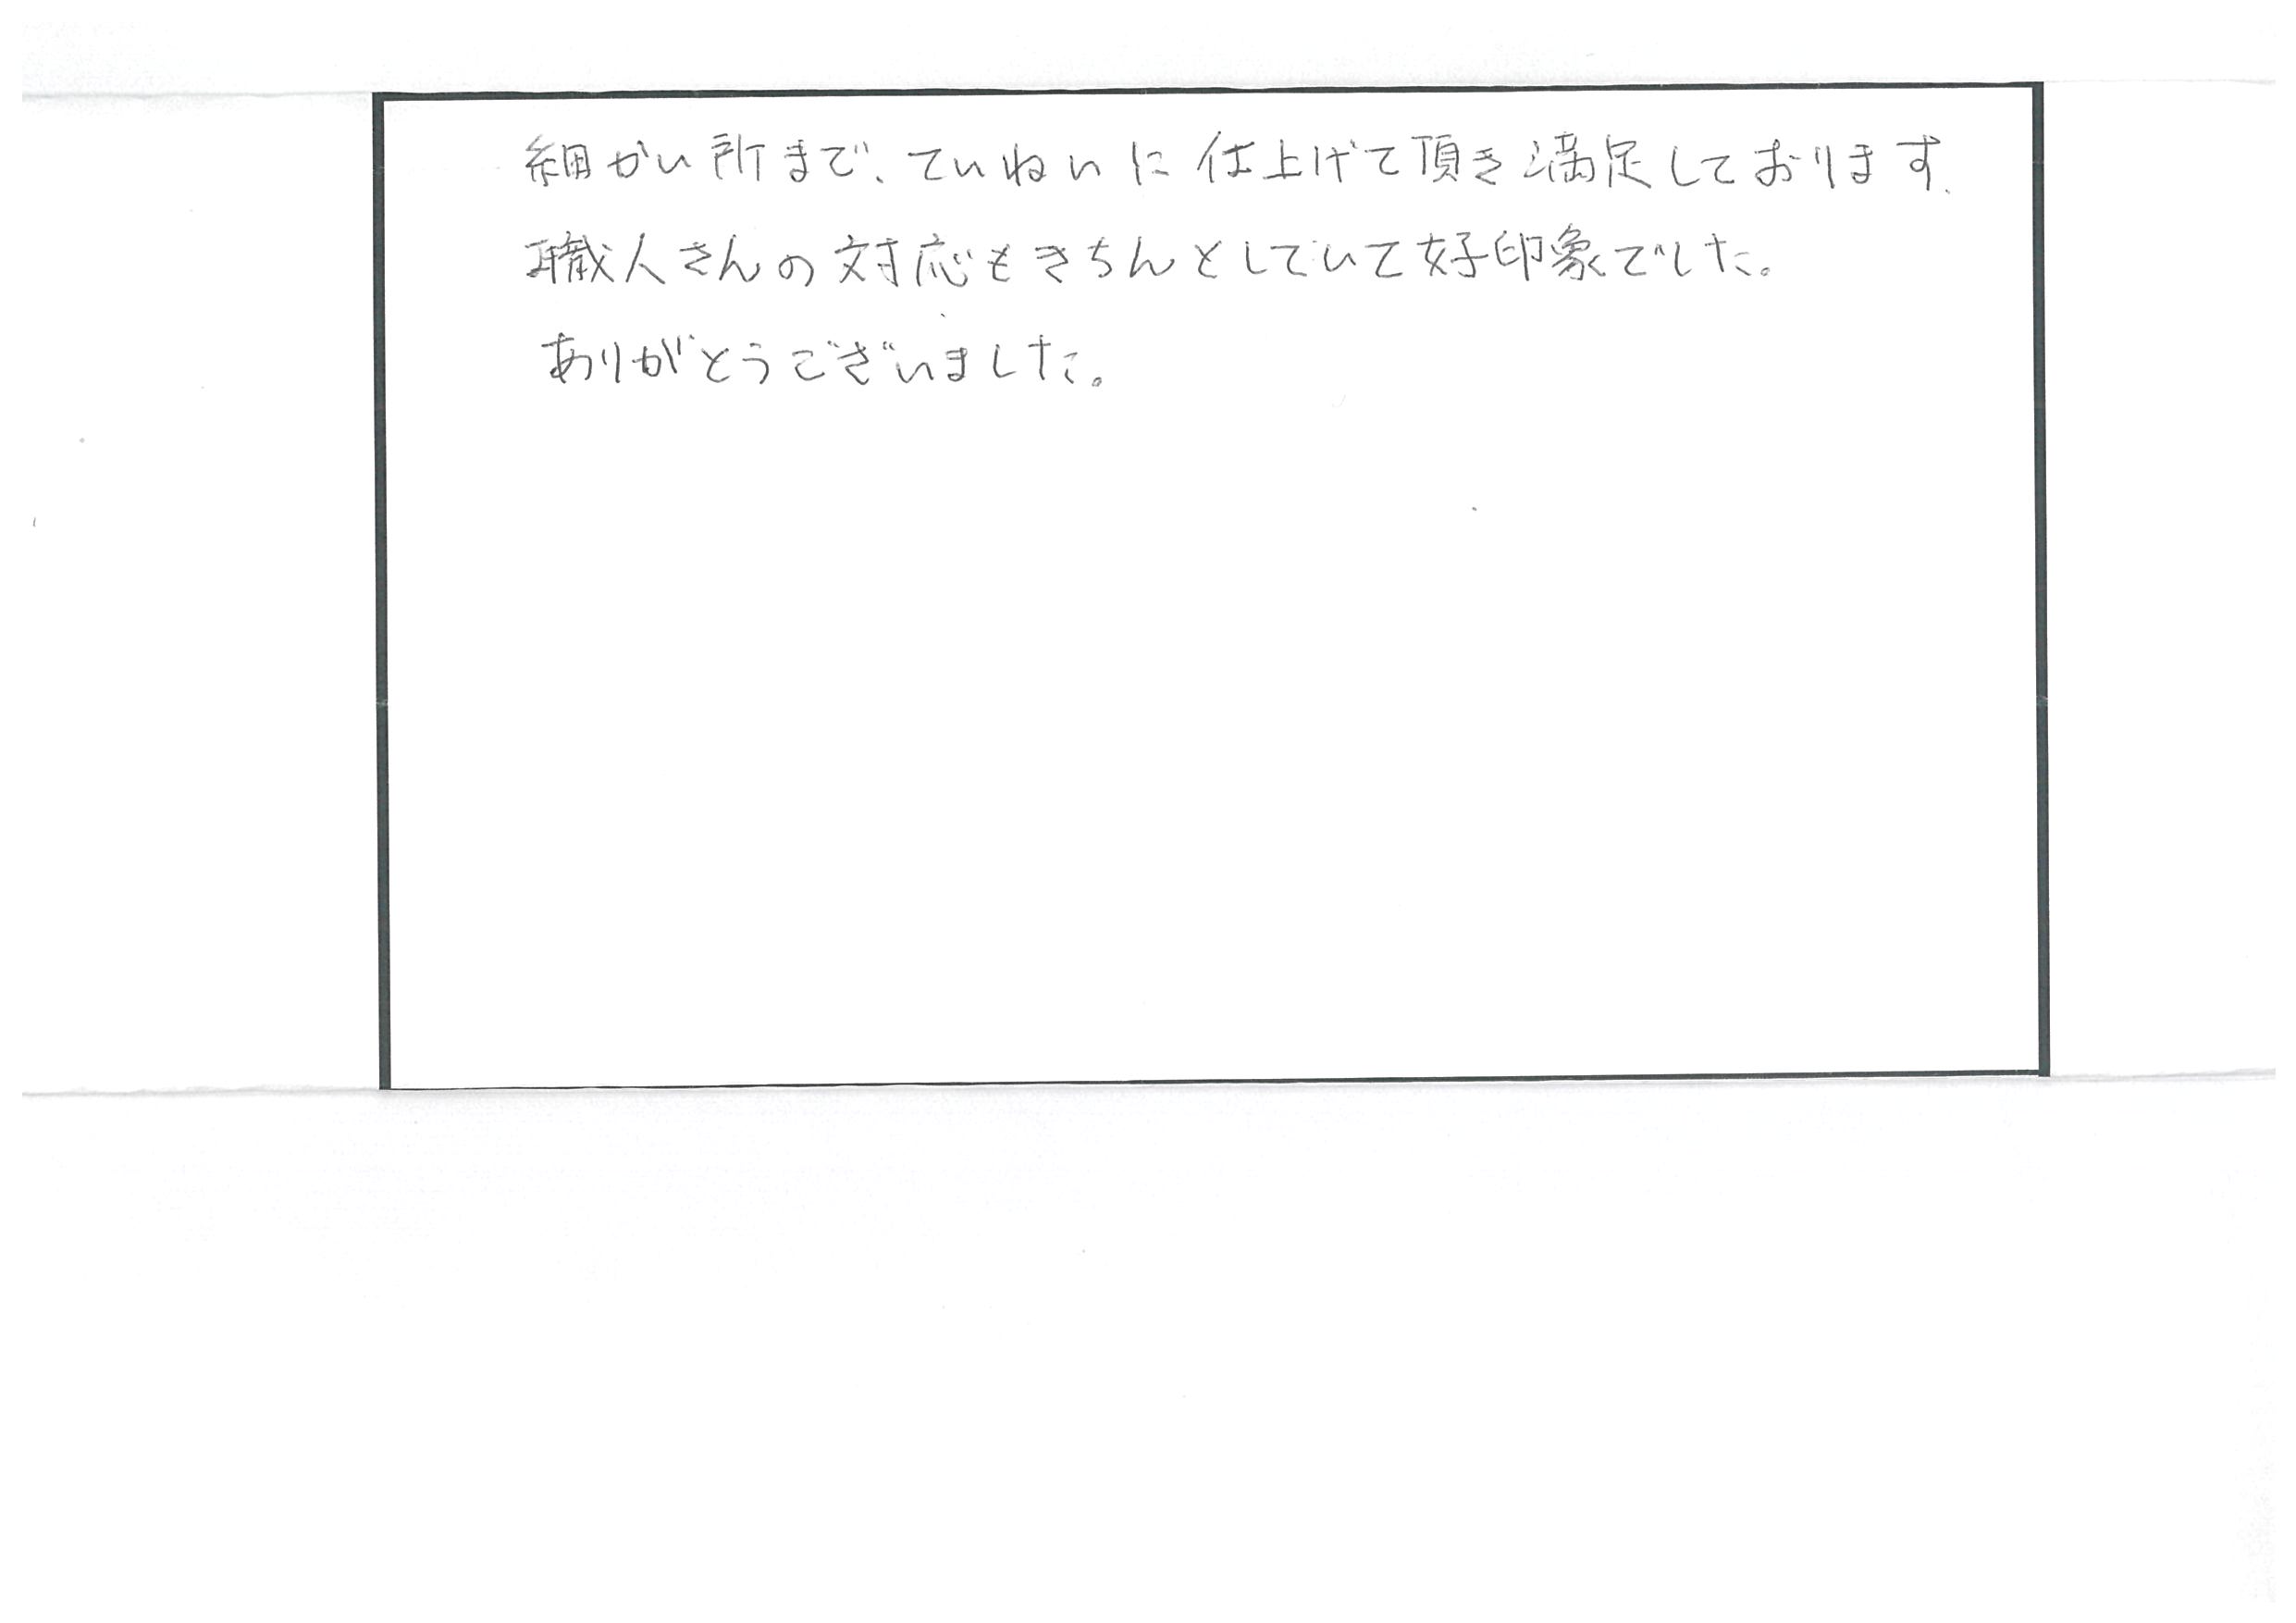 細かい所まで、ていねいに仕上げて頂き満足しております、
職人さんの対応もきちんとしていて好印象でした。
ありがとうございました。